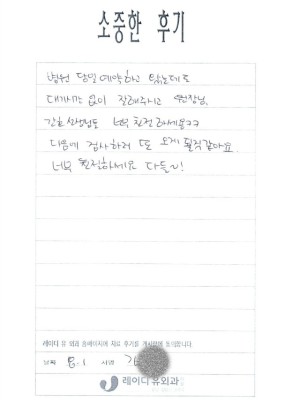 소중한 후기
병원 당일예약하고 왔는데도
대기시간 없이 잘해주시고 원장님,
간호선생님도 너무 친절하세용ㅋㅋ
다음에 검사하러 또 오게 될것같아요.
너무 친절하세요 다들~!
레이디 유 외과 홈페이지에 치료 후기를 게시함에 동의합니다.
날짜 8. 1 서명
레이디유외과